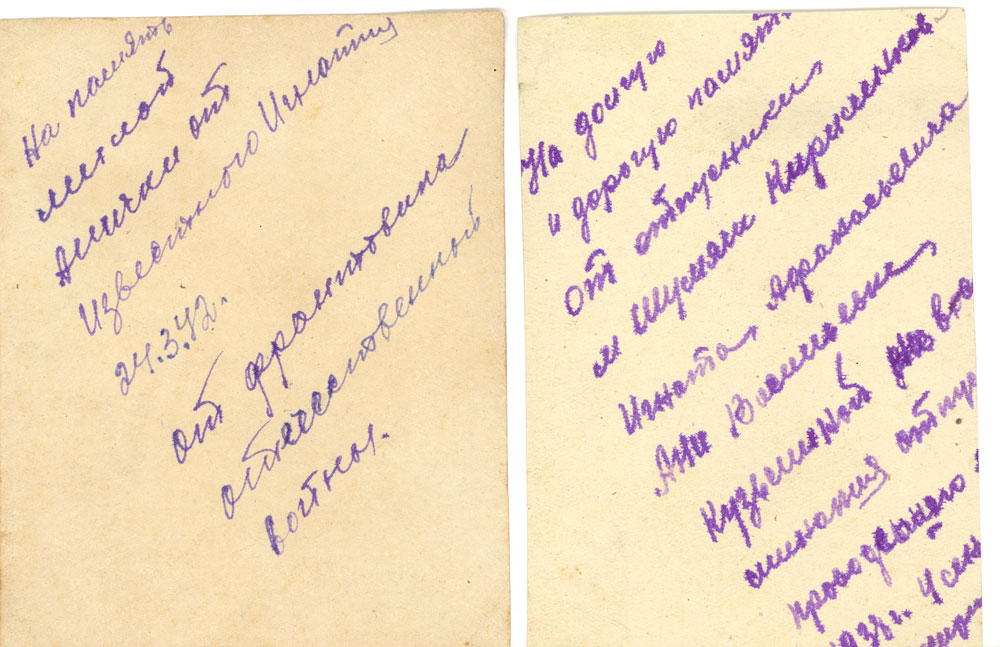 На память
милой
Анички от
Известного Игнатия
24.3.42.
от фронтовика
отечественный
войны.
На долгую
и дорогую памят
от отпускники
и
Игната Афанасьевича
Ани Васильевне
Кузьминой на вос
минания отпу
проводеного
193 г. 4 сен